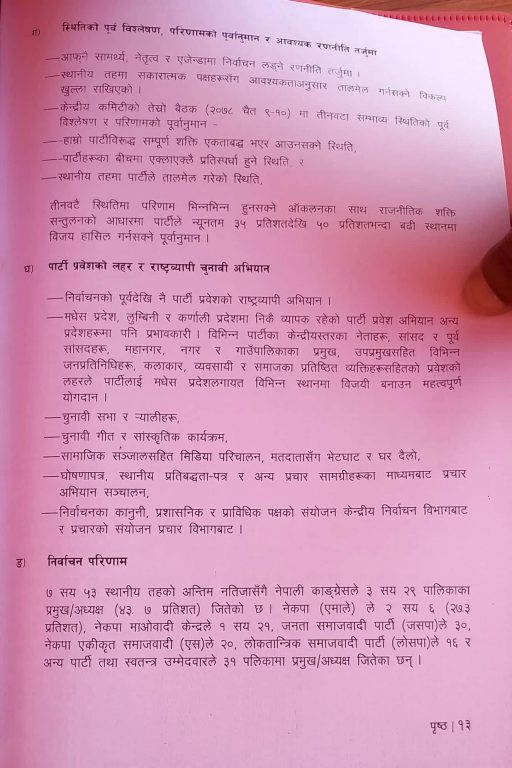 ग) स्थितिको पूर्व विश्लेषण, परिणामको पूर्वानुमान र आवश्यक रणनीति तर्जुमा
—आफ्नै सामर्थ्य, नेतृत्व र एजेन्डामा निर्वाचन लड्ने रणनीति तर्जुमा ।
—स्थानीय तहमा सकारात्मक पक्षहरूसँग आवश्यकताअनुसार तालमेल गर्नसक्ने विकल्प
खुल्ला राखिएको ।
—केन्द्रीय कमिटीको तेस्रो बैठक (२०७८ चैत ९-१०) मा तीनवटा सम्भाव्य स्थितिको पूर्व
विश्लेषण र परिणामको पूर्वानुमान -
—हाम्रो पार्टीविरुद्ध सम्पूर्ण शक्ति एकताबद्ध भएर आउनसक्ने स्थिति,
—पार्टीहरूका बीचमा एक्लाएक्लै प्रतिस्पर्धा हुने स्थिति, र
—स्थानीय तहमा पार्टीले तालमेल गरेको स्थिति,
तीनवटै स्थितिमा परिणाम भिन्नभिन्न हुनसक्ने आँकलनका साथ राजनीतिक शक्ति
सन्तुलनको आधारमा पार्टीले न्यूनतम ३५ प्रतिशतदेखि ५० प्रतिशतभन्दा बढी स्थानमा
विजय हासिल गर्नसक्ने पूर्वानुमान ।
घ) पार्टी प्रवेशको लहर र राष्ट्रव्यापी चुनावी अभियान
—निर्वाचनको पूर्वदेखि नै पार्टी प्रवेशको राष्ट्रव्यापी अभियान ।
—मधेस प्रदेश, लुम्बिनी र कर्णाली प्रदेशमा निकै व्यापक रहेको पार्टी प्रवेश अभियान अन्य
प्रदेशहरूमा पनि प्रभावकारी । विभिन्न पार्टीका केन्द्रीयस्तरका नेताहरू, सांसद र पूर्व
सांसदहरू, महानगर, नगर र गाउँपालिकाका प्रमुख, उपप्रमुखसहित विभिन्न
जनप्रतिनिधिहरू, कलाकार, व्यवसायी र समाजका प्रतिष्ठित व्यक्तिहरूसहितको प्रवेशको
लहरले पार्टीलाई मधेस प्रदेशलगायत विभिन्न स्थानमा विजयी बनाउन महत्वपूर्ण
योगदान ।
—चुनावी सभा र र्‍यालीहरू,
—चुनावी गीत र सांस्कृतिक कार्यक्रम,
—सामाजिक सञ्जालसहित मिडिया परिचालन, मतदातासँग भेटघाट र घर दैलो,
—घोषणापत्र, स्थानीय प्रतिबद्धता-पत्र र अन्य प्रचार सामग्रीहरूका माध्यमबाट प्रचार
अभियान सञ्चालन,
—निर्वाचनका कानुनी, प्रशासनिक र प्राविधिक पक्षको संयोजन केन्द्रीय निर्वाचन विभागबाट
र प्रचारको संयोजन प्रचार विभागबाट ।
ङ) निर्वाचन परिणाम
७ सय ५३ स्थानीय तहको अन्तिम नतिजासँगै नेपाली काङ्ग्रेसले ३ सय २९ पालिकाका
प्रमुख/अध्यक्ष (४३. ७ प्रतिशत) जितेको छ । नेकपा (एमाले) ले २ सय ६ (२७.३
प्रतिशत), नेकपा माओवादी केन्द्रले १ सय २१, जनता समाजवादी पार्टी (जसपा)ले ३०,
नेकपा एकीकृत समाजवादी (एस)ले २०, लोकतान्त्रिक समाजवादी पार्टी (लोसपा)ले १६ र
अन्य पार्टी तथा स्वतन्त्र उम्मेदवारले ३१ पलिकामा प्रमुख/अध्यक्ष जितेका छन् ।
पृष्ठ | १३